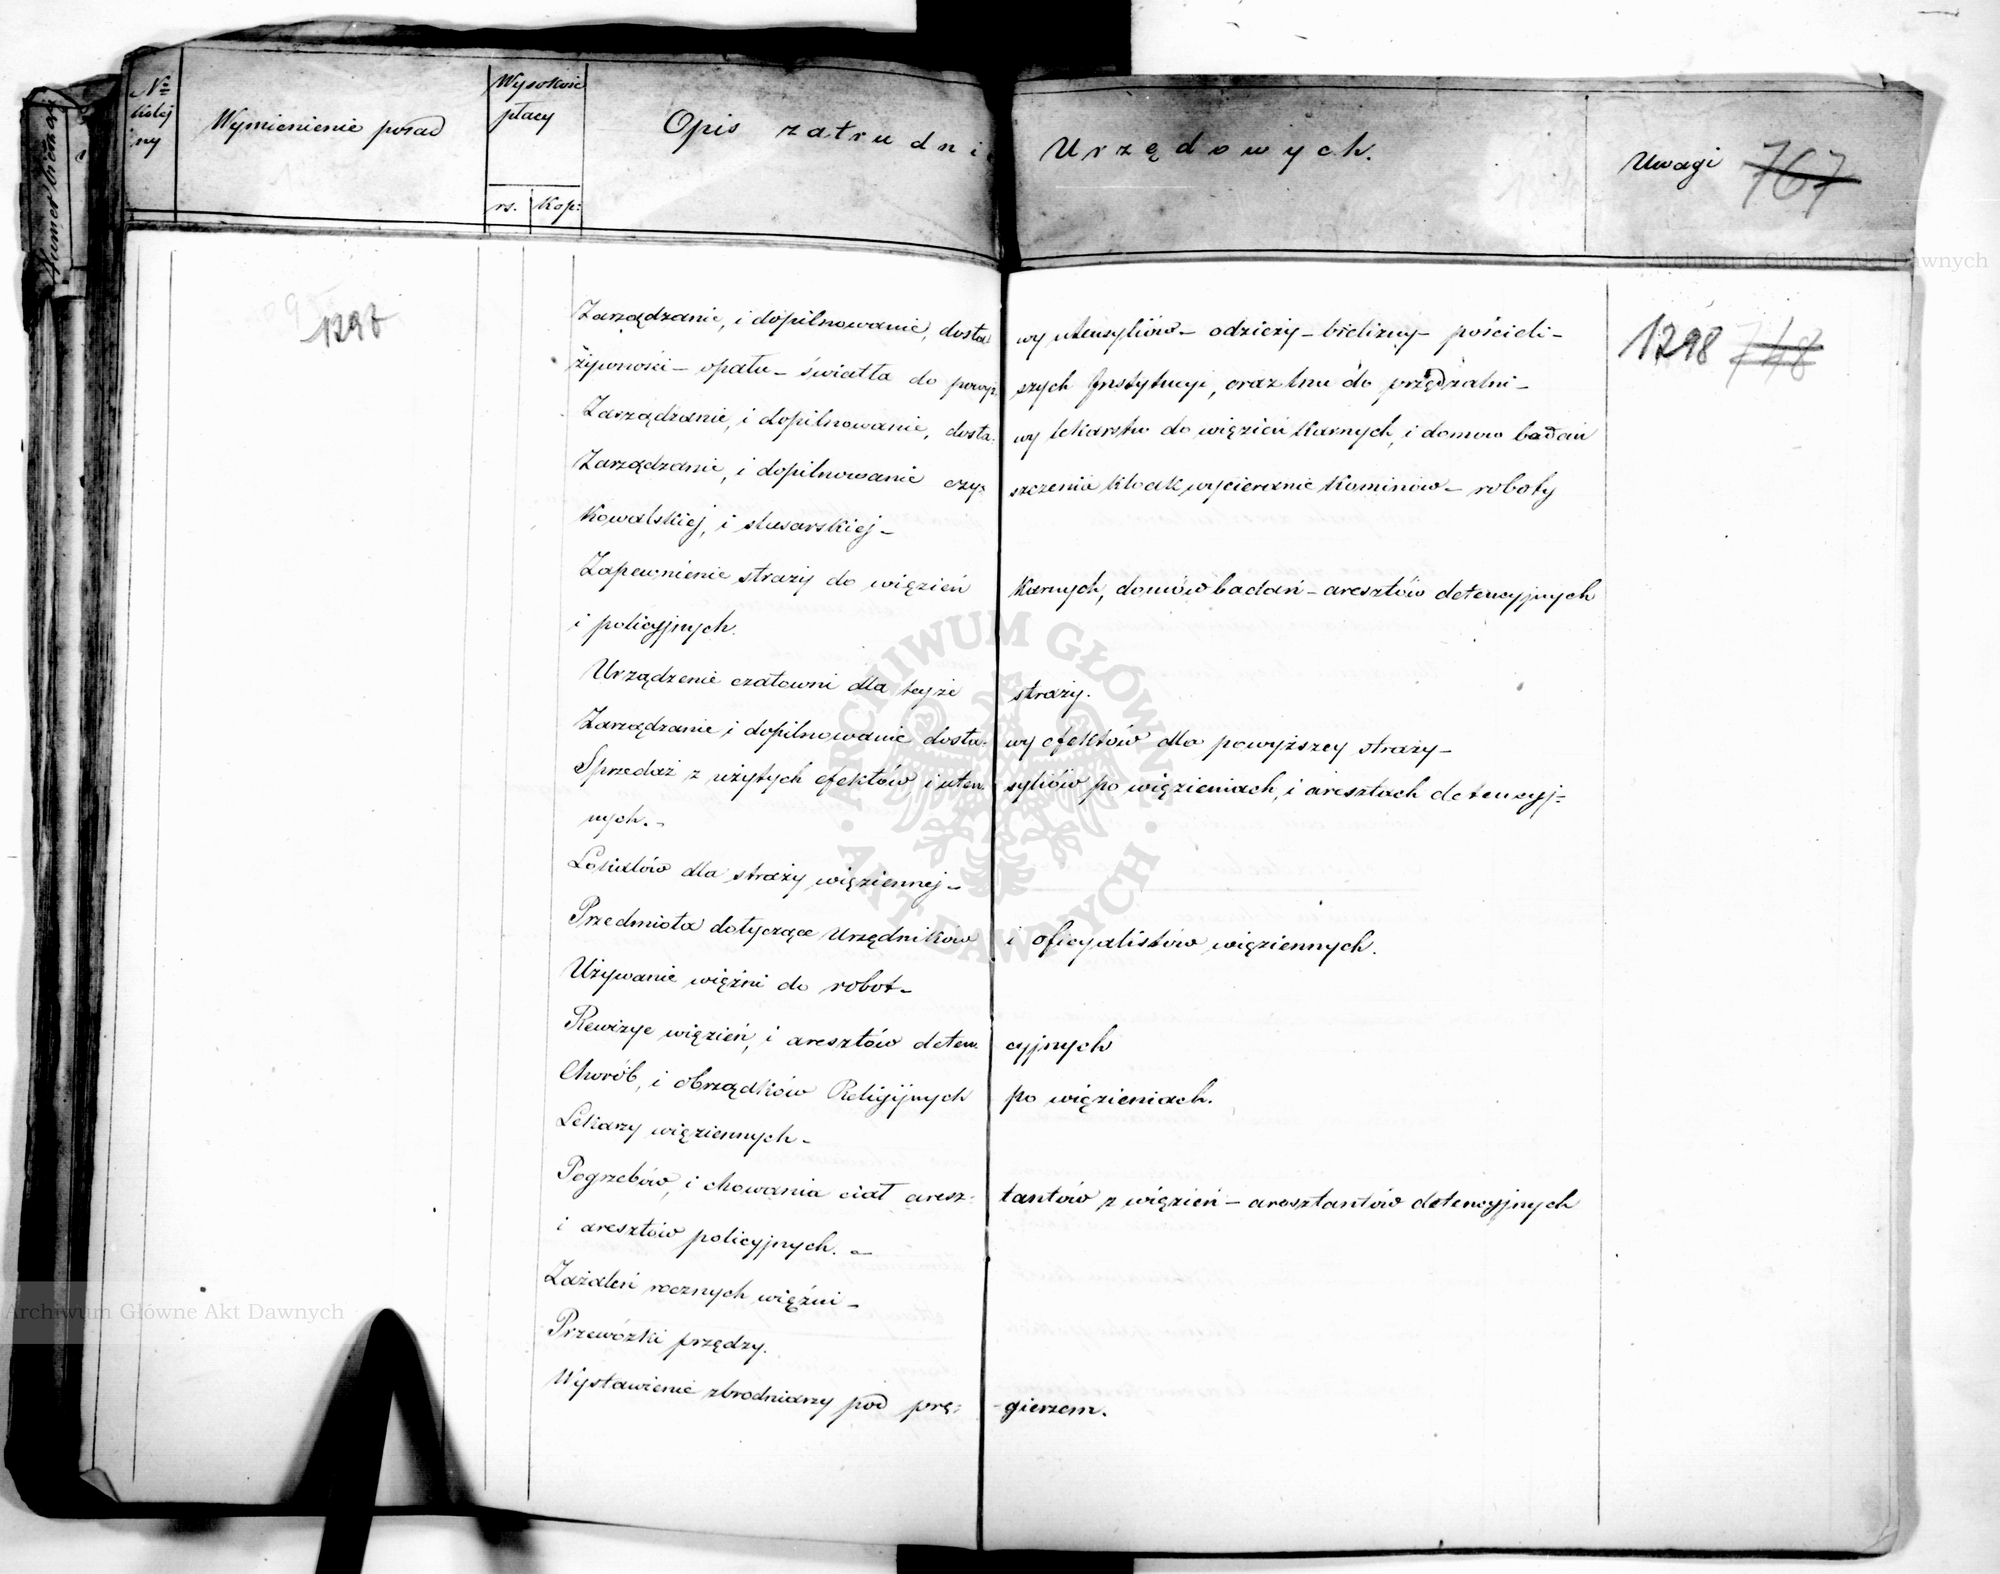 № kolejny
Wymienienie posad
Wysokość płacy
rs. Kop:
Opis zatrudni Urzędowych.
Uwagi 767
1297
1298 748
Zarządzanie, i dopilnowanie, dosta wy utensyliów – odzieży – bielizny – pościeli –
żywności – opału – światła do powyż szych Instytucyi, oraz lnu do przędzalni –
Zarządzanie, i dopilnowanie, dosta- wy lekarstw do więzień Karnych, i domow badań
Zarządzanie, i dopilnowanie czy- szczenia kloak wycieranie Kominów – roboty
Kowalskiej, i slusarskiej –
Zapewnienie straży do więzień Karnych, domów badań – aresztów detencyjnych
i policyjnych.
Urządzenie czatowni dla teyże straży.
Zarządzanie i dopilnowanie dosta- wy efektów dla powyższey straży –
Sprzedaż z użytych efektów i uten- syliów po więzieniach, i aresztach detencyj-
nych. –
Lokalów dla straży więziennej –
Przedmiota dotyczące Urzędników i oficyalistów więziennych.
Używanie więźni do robot –
Rewizye więzień, i aresztów deten- cyjnych
Chorób, i obrządków Religijnych po więzieniach.
Lekarzy więziennych –
Pogrzebów, i chowania ciał aresz- tantów z więzień – aresztantów detencyjnych
i aresztów policyjnych. –
Zażaleń rocznych więźni –
Przewózki przędzy.
Wystawienie zbrodniarzy pod prę- gierzem.
Archiwum Główne Akt Dawnych
Archiwum Główne Akt Dawnych
ARCHIWUM GŁÓWNE · AKT DAWNYCH ·